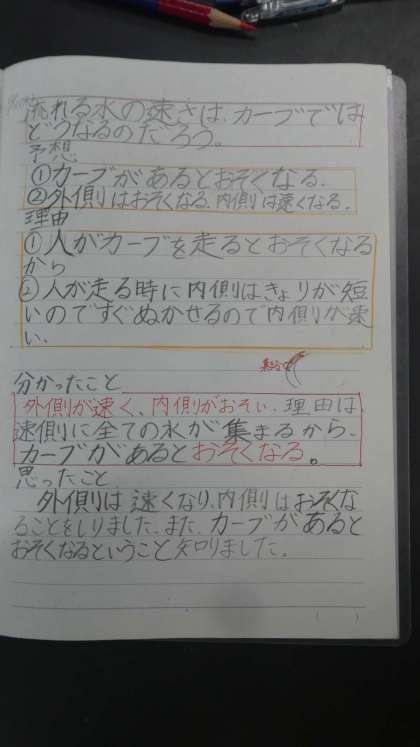 流れる水の速さは、カーブでは
どうなるのだろう。
予想
①カーブがあるとおそくなる。
②外側はおそくなる、内側は速くなる。
理由
①人がカーブを走るとおそくなる
から
②人が走る時に内側はきょりが短
いのですぐぬかせるので内側が速
い.
分かったこと
外側が速く、内側がおそい.理由は、
速側に全ての水が集まるから、
カーブがあるとおそくなる。
思ったこと
外側は速くなり、内側はおそくな
ることをしりました.また、カーブがあると
おそくなるということ知りました。